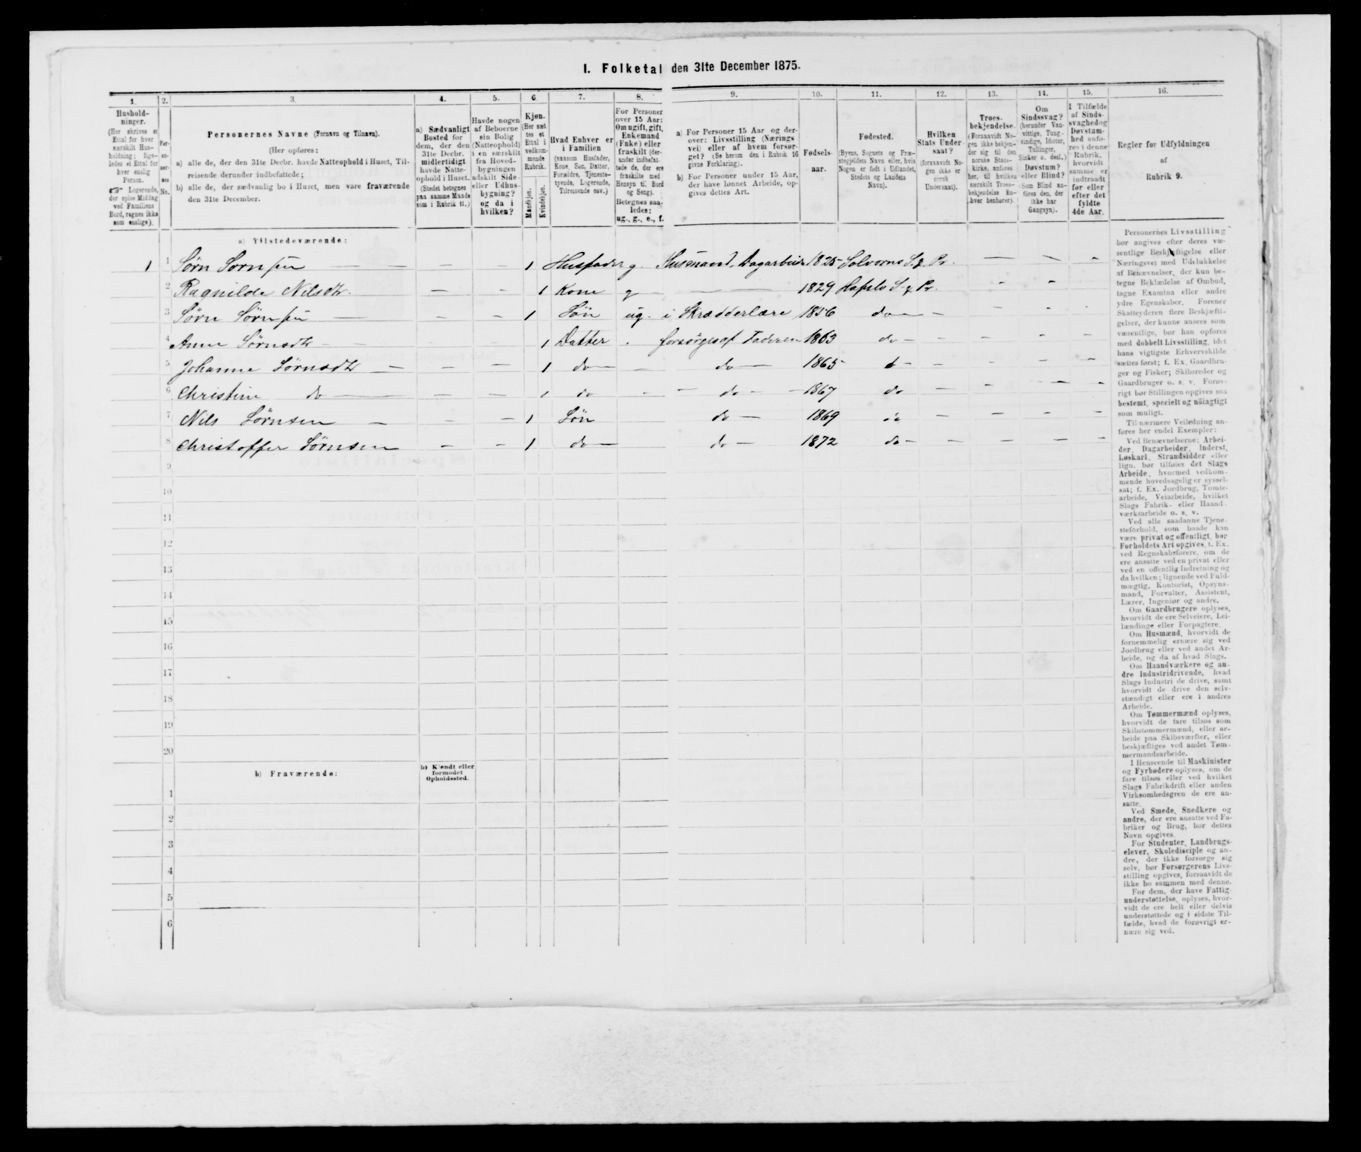 I. Folketal den 31te December 1875.
1. 2. 3. 4. 5. 6. 7. 8. 9. 10. 11. 12. 13. 14. 15. 16.
Personernes Navne (Fornavn og Tilnavn).
(Her opføres:
a) alle de, der den 31te Decbr. havde Natteophold i Huset, Tilreisende derunder indbefattede;
b) alle de, der sædvanlig bo i Huset, men vare fraværende den 31te December.
a) Sædvanligt Bosted for dem, der den 31te Decbr. midlertidigt havde Natteophold i Huset.
Kjøn.
Mandkjøn. Kvindekjøn.
Hvad Enhver er i Familien
Fødselsaar.
Fødested.
Hvilken Stats Undersaat?
Troesbekjendelse.
Regler for Udfyldningen af Rubrik 9.
a) Tilstedeværende:
1 1 Sørn Sørnsen 1 Husfader g Husmand, Dagarbeide 1825 Solvorns S. g Pr.
2 Ragnilde Nilsdtr. 1 Kone g 1829 Hafslo S. g Pr.
3 Sørn Sørnsen 1 Søn ug. i Skrædderlære 1856 do
4 Anne Sørnsdtr 1 Datter forsørges af Faderen 1863 do
5 Johanne Sørnsdtr 1 do do 1865 d
6 Christine do 1 do do 1867 do
7 Nils Sørnsen 1 Søn do 1869 do
8 Christoffer Sørnsen 1 do do 1872 do
9
10
11
12
13
14
15
16
17
18
19
20
b) Fraværende: b) Kjendt eller formodet Opholdssted.
1
2
3
4
5
6
Personernes Livsstilling
bør angives efter deres væ-
sentlige Beskjæftigelse eller
Næringsvei med Udelukkelse
af Benævnelser, der kun be-
tegne Beklædelse af Ombud,
tagne Examina eller andre
ydre Egenskaber. Forener
Skatteyderen flere Beskjæfti-
gelser, der kunne ansees som
væsentlige, bør han opføres
med dobbelt Livsstilling, idet
hans vigtigste Erhvervskilde
sættes først; f. Ex. Gaardbru-
ger og Fisker; Skibsreder og
Gaardbruger o. s. v. Forøv-
rigt bør Stillingen opgives saa
bestemt, specielt og nøiagtigt
som muligt.
Til nærmere Veiledning an-
føres her endel Exempler:
Ved Benævnelserne: Arbei-
der, Dagarbeider, Inderst,
Løskarl, Strandsidder eller
lign. bør tilføies det Slags
Arbeide, hvormed vedkom-
mende hovedsagelig er syssel-
sat; f. Ex. Jordbrug, Tomte-
arbeide, Veiarbeide, hvilket
Slags Fabrik- eller Haand-
værksarbeide o. s. v.
Ved alle saadanne Tjene-
steforhold, som baade kan
være privat og offentligt, bør
Forholdets Art opgives, f. Ex.
ved Regnskabsførere, om de
ere ansatte ved en privat eller
ved en offentlig Indretning og
da hvilken; lignende ved Fuld-
mægtig, Kontorist, Opsyns-
mand, Forvalter, Assistent,
Lærer, Ingeniør og andre.
Om Gaardbrugere oplyses,
hvorvidt de ere Selveiere, Lei-
lændinge eller Forpagtere.
Om Husmænd, hvorvidt de
fornemmelig ernære sig ved
Jordbrug eller ved andet Ar-
beide, og da af hvad Slags.
Om Haandværkere og an-
dre Industridrivende, hvad
Slags Industri de drive, samt
hvorvidt de drive den selv-
stændigt eller ere i andres
Arbeide.
Om Tømmermænd oplyses,
hvorvidt de fare tilsøs som
Skibstømmermænd, eller ar-
beide paa Skibsværfter, eller
beskjæftiges ved andet Tøm-
mermandsarbeide.
I Henseende til Maskinister
og Fyrbødere oplyses, om de
fare tilsøs eller ved hvilket
Slags Fabrikdrift eller anden
Virksomhedsgren de ere an-
satte.
Ved Smede, Snedkere og
andre, der ere ansatte ved Fa-
briker og Brug, bør dettes
Navn opgives.
For Studenter, Landbrugs-
elever, Skoledisciple og an-
dre, der ikke forsørge sig
selv, bør Forsørgerens Livs-
stilling opgives, forsaavidt de
ikke bo sammen med denne.
For dem, der have Fattig-
understøttelse, oplyses, hvor-
vidt de ere helt eller delvis
understøttede og i sidste Til-
fælde, hvad de forøvrigt er-
nære sig ved.